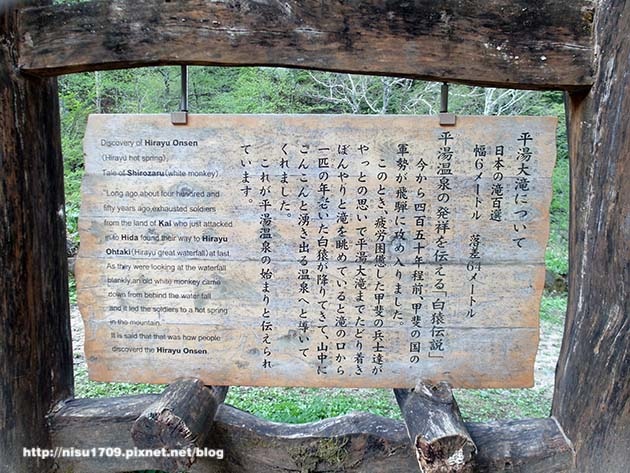 平湯大滝について
日本の滝百選
幅6メートル　落差64メートル
平湯温泉の発祥を伝える「白猿伝説」
今から四百五十年程前、甲斐の国の
軍勢が飛騨に攻め入りました。
このとき、疲労困憊した甲斐の兵士達が
やっとの思いで平湯大滝までたどり着き
ぼんやりと滝を眺めていると滝の口から
一匹の年老いた白猿が降りてきて、山中に
こんこんと湧き出る温泉へと導いて
くれました。
これが平湯温泉の始まりと伝えられ
ています。
Discovery of Hirayu Onsen
(Hirayu hot spring),
Tale of Shirozaru(white monkey)
"Long ago,about four hundred and
fifty years ago,exhausted soldiers
from the land of Kai who just attacked
into Hida found their way to Hirayu
Ohtaki(Hirayu great waterfall)at last.
As they were looking at the waterfall
blankly,an old white monkey came
down from behind the water fall
and it led the soldiers to a hot spring
in the mountain."
It is said that that was how people
discoverd the Hirayu Onsen.
http://nisu1709.pixnet.net/blog